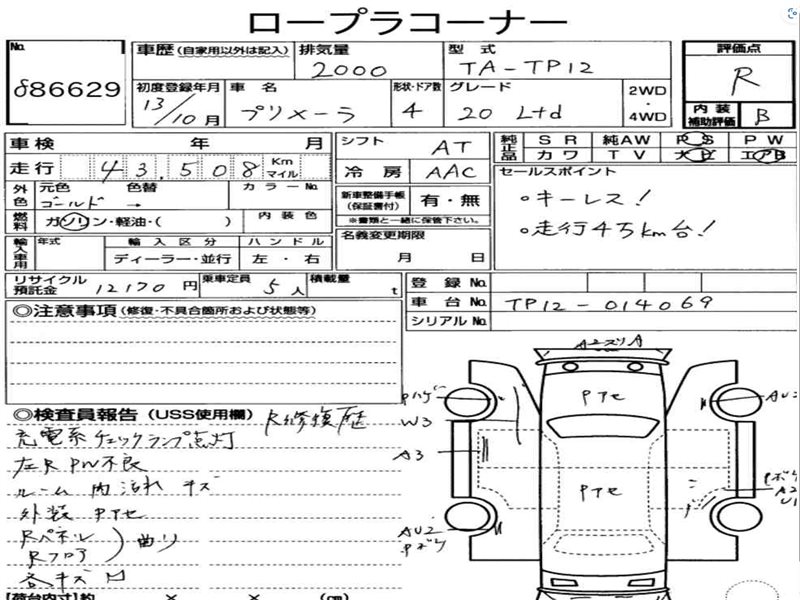 ロープラコーナー
No.
686629
車歴(自家用以外は記入)
排気量
2000
型式
TA-TP12
評価点
R
内装
補助評価
B
初度登録年月
13/10月
車名
プリメーラ
形状・ドア数
4
グレード
20 Ltd
2WD
・
4WD
車検 年 月
走行 43,508 Km マイル
シフト
AT
冷房
AAC
純正品
SR 純AW PS PW
カワ TV ナビ エアB
外色
元色 色替
ゴールド →
カラーNo.
新車整備手帳
(保証書付)
有・無
※書類と一緒に保管下さい。
セールスポイント
。キーレス!
。走行4万km台!
燃料
ガソリン・軽油・( )
内装色
輸入車用
年式
輸入区分
ディーラー・並行
ハンドル
左・右
名義変更期限
月 日
リサイクル
預託金
12170円
乗車定員
5人
積載量
t
登録No.
車台No.
TP12-014069
シリアルNo.
◎注意事項(修復・不具合箇所および状態等)
◎検査員報告(USS使用欄)
R修復歴
充電系チェックランプ点灯
左R PW不良
ルーム内汚れ キズ
外装 Pアセ
Rパネル
Rフロア
)曲り
各キズ凹
【荷台内寸】約 × × (cm)
Pハゲ
W3
A3
AU2
Pボケ
Pアセ
Pアセ